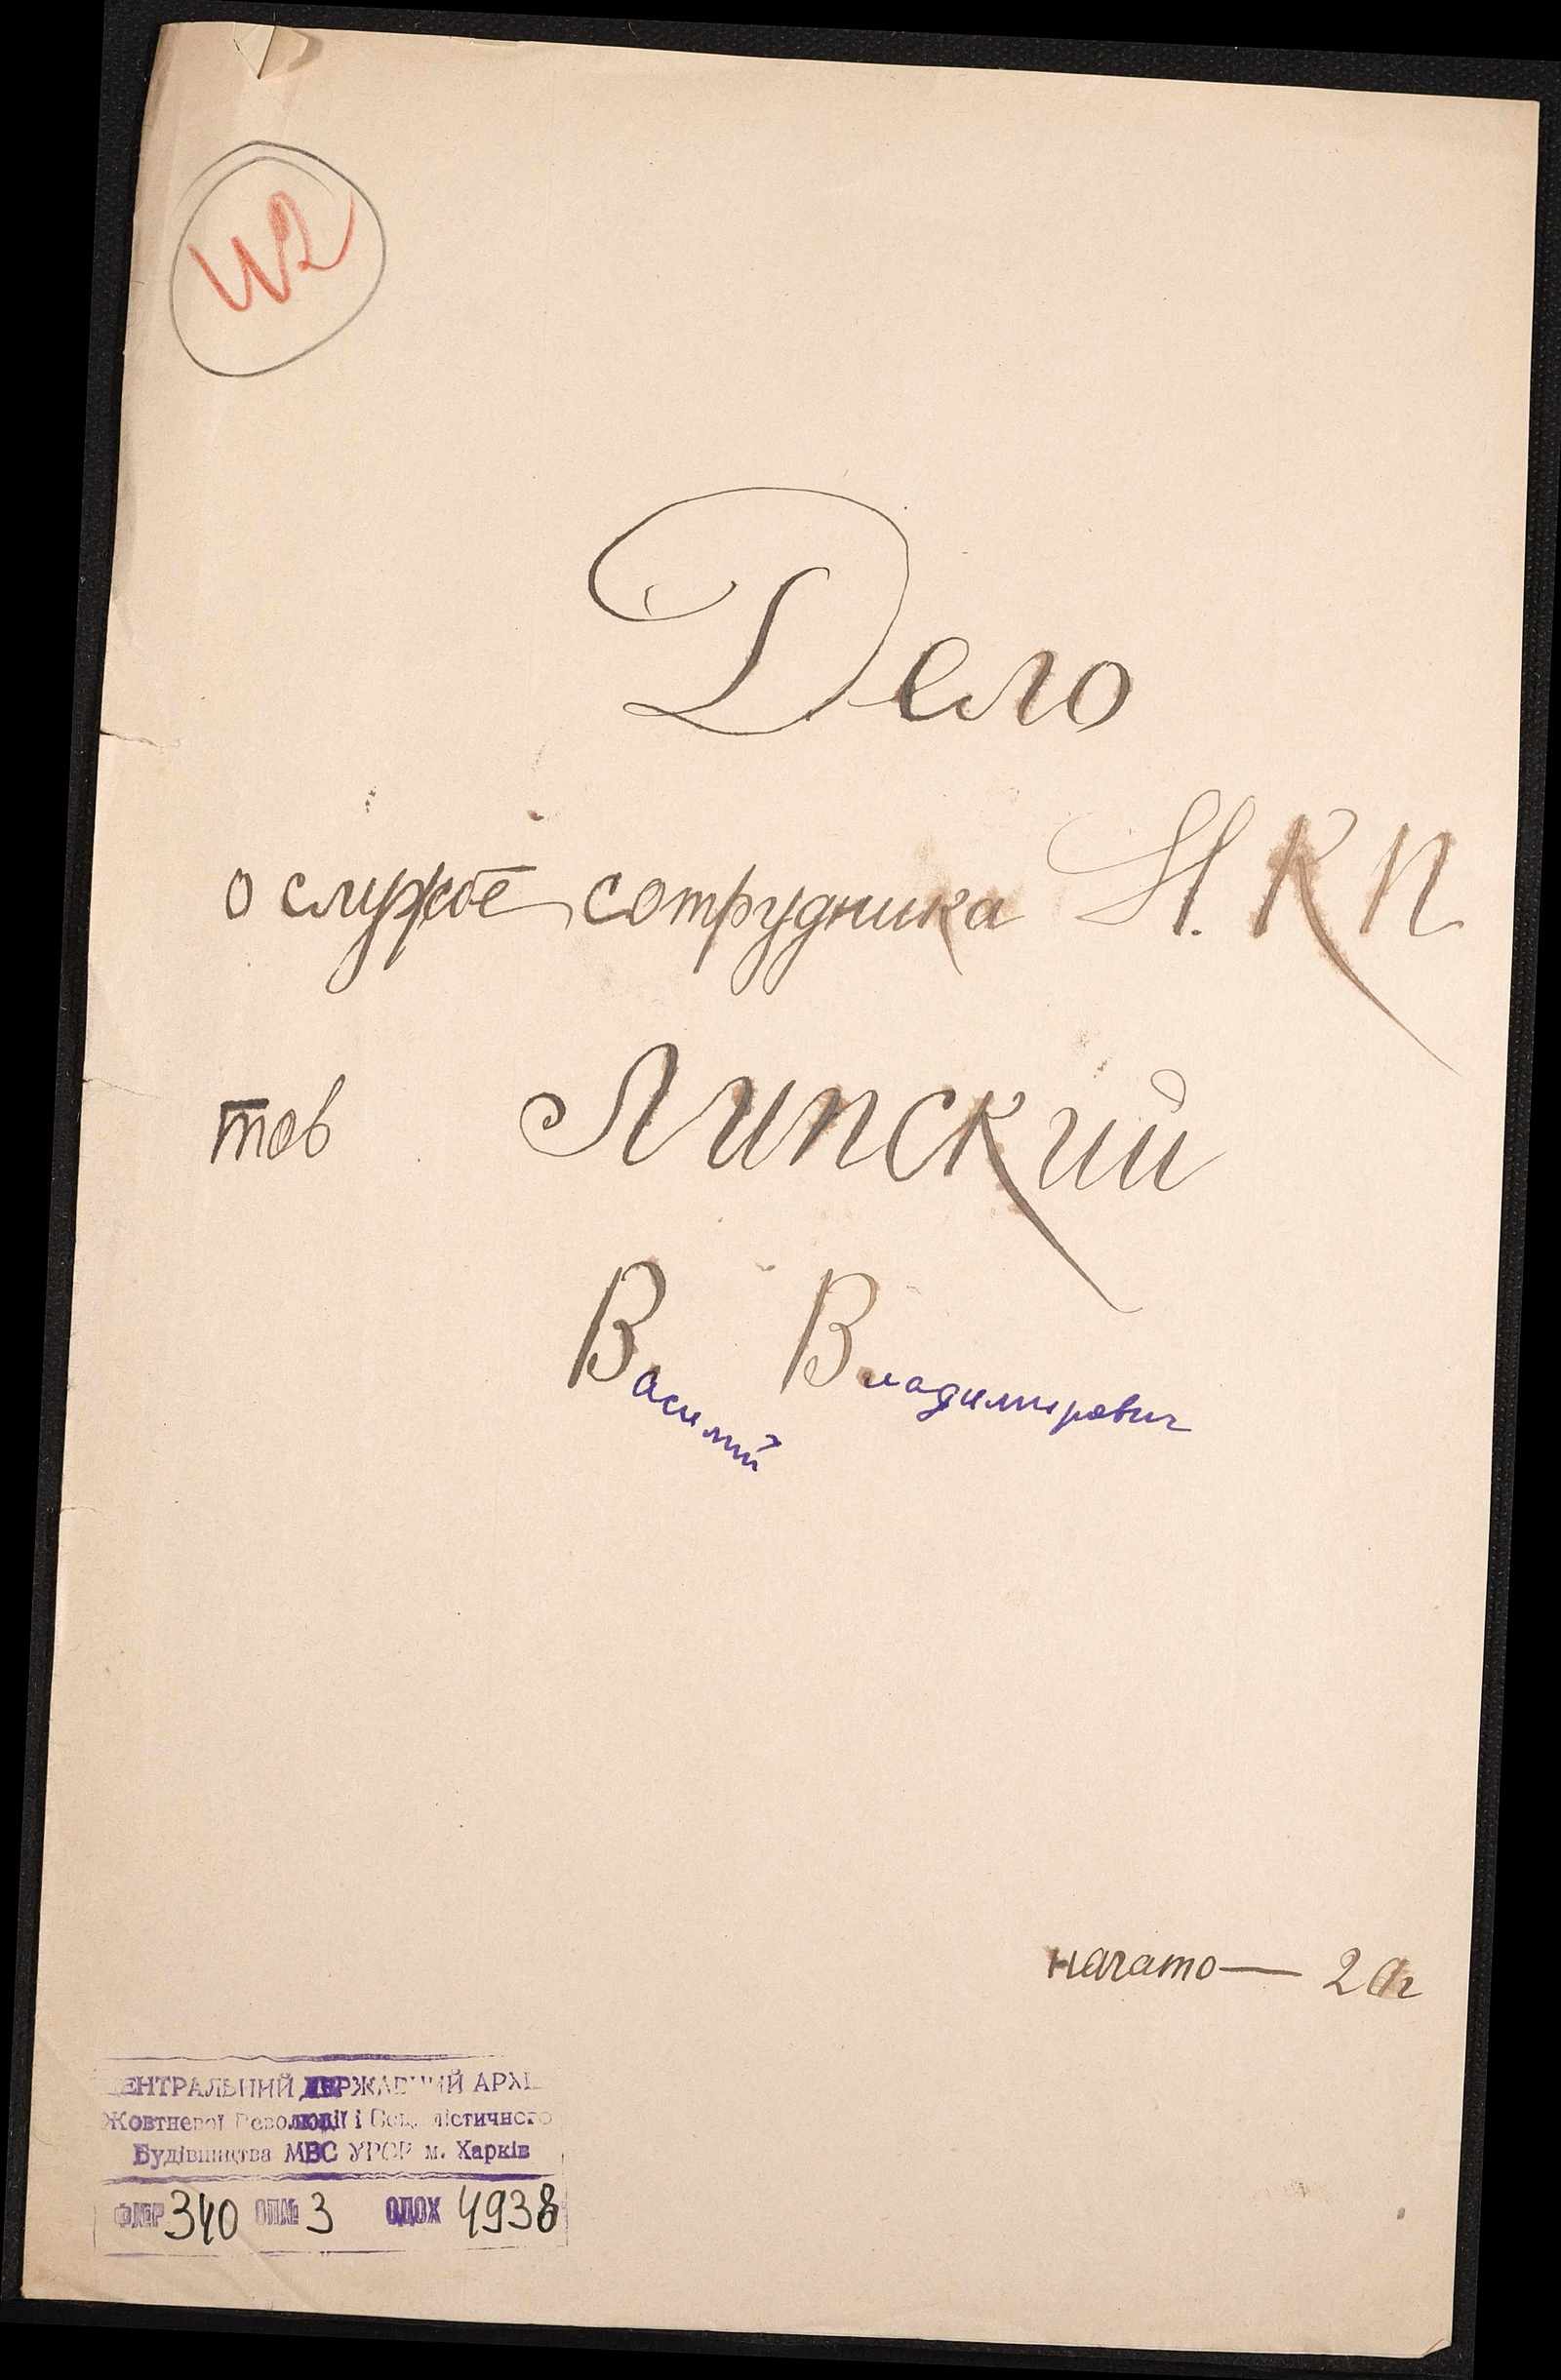 Дело
о службе сотрудника Н. К П
тов Липский
Василий Владимирович
начато — 2
ЦЕНТРАЛЬНИЙ ДЕРЖАВНИЙ АРХІВ
Жовтневої Революції і Соціалістичного
Будівництва МВС УРСР м. Харків
Ф№Р 340 ОП№ 3 ОДОХ 4938